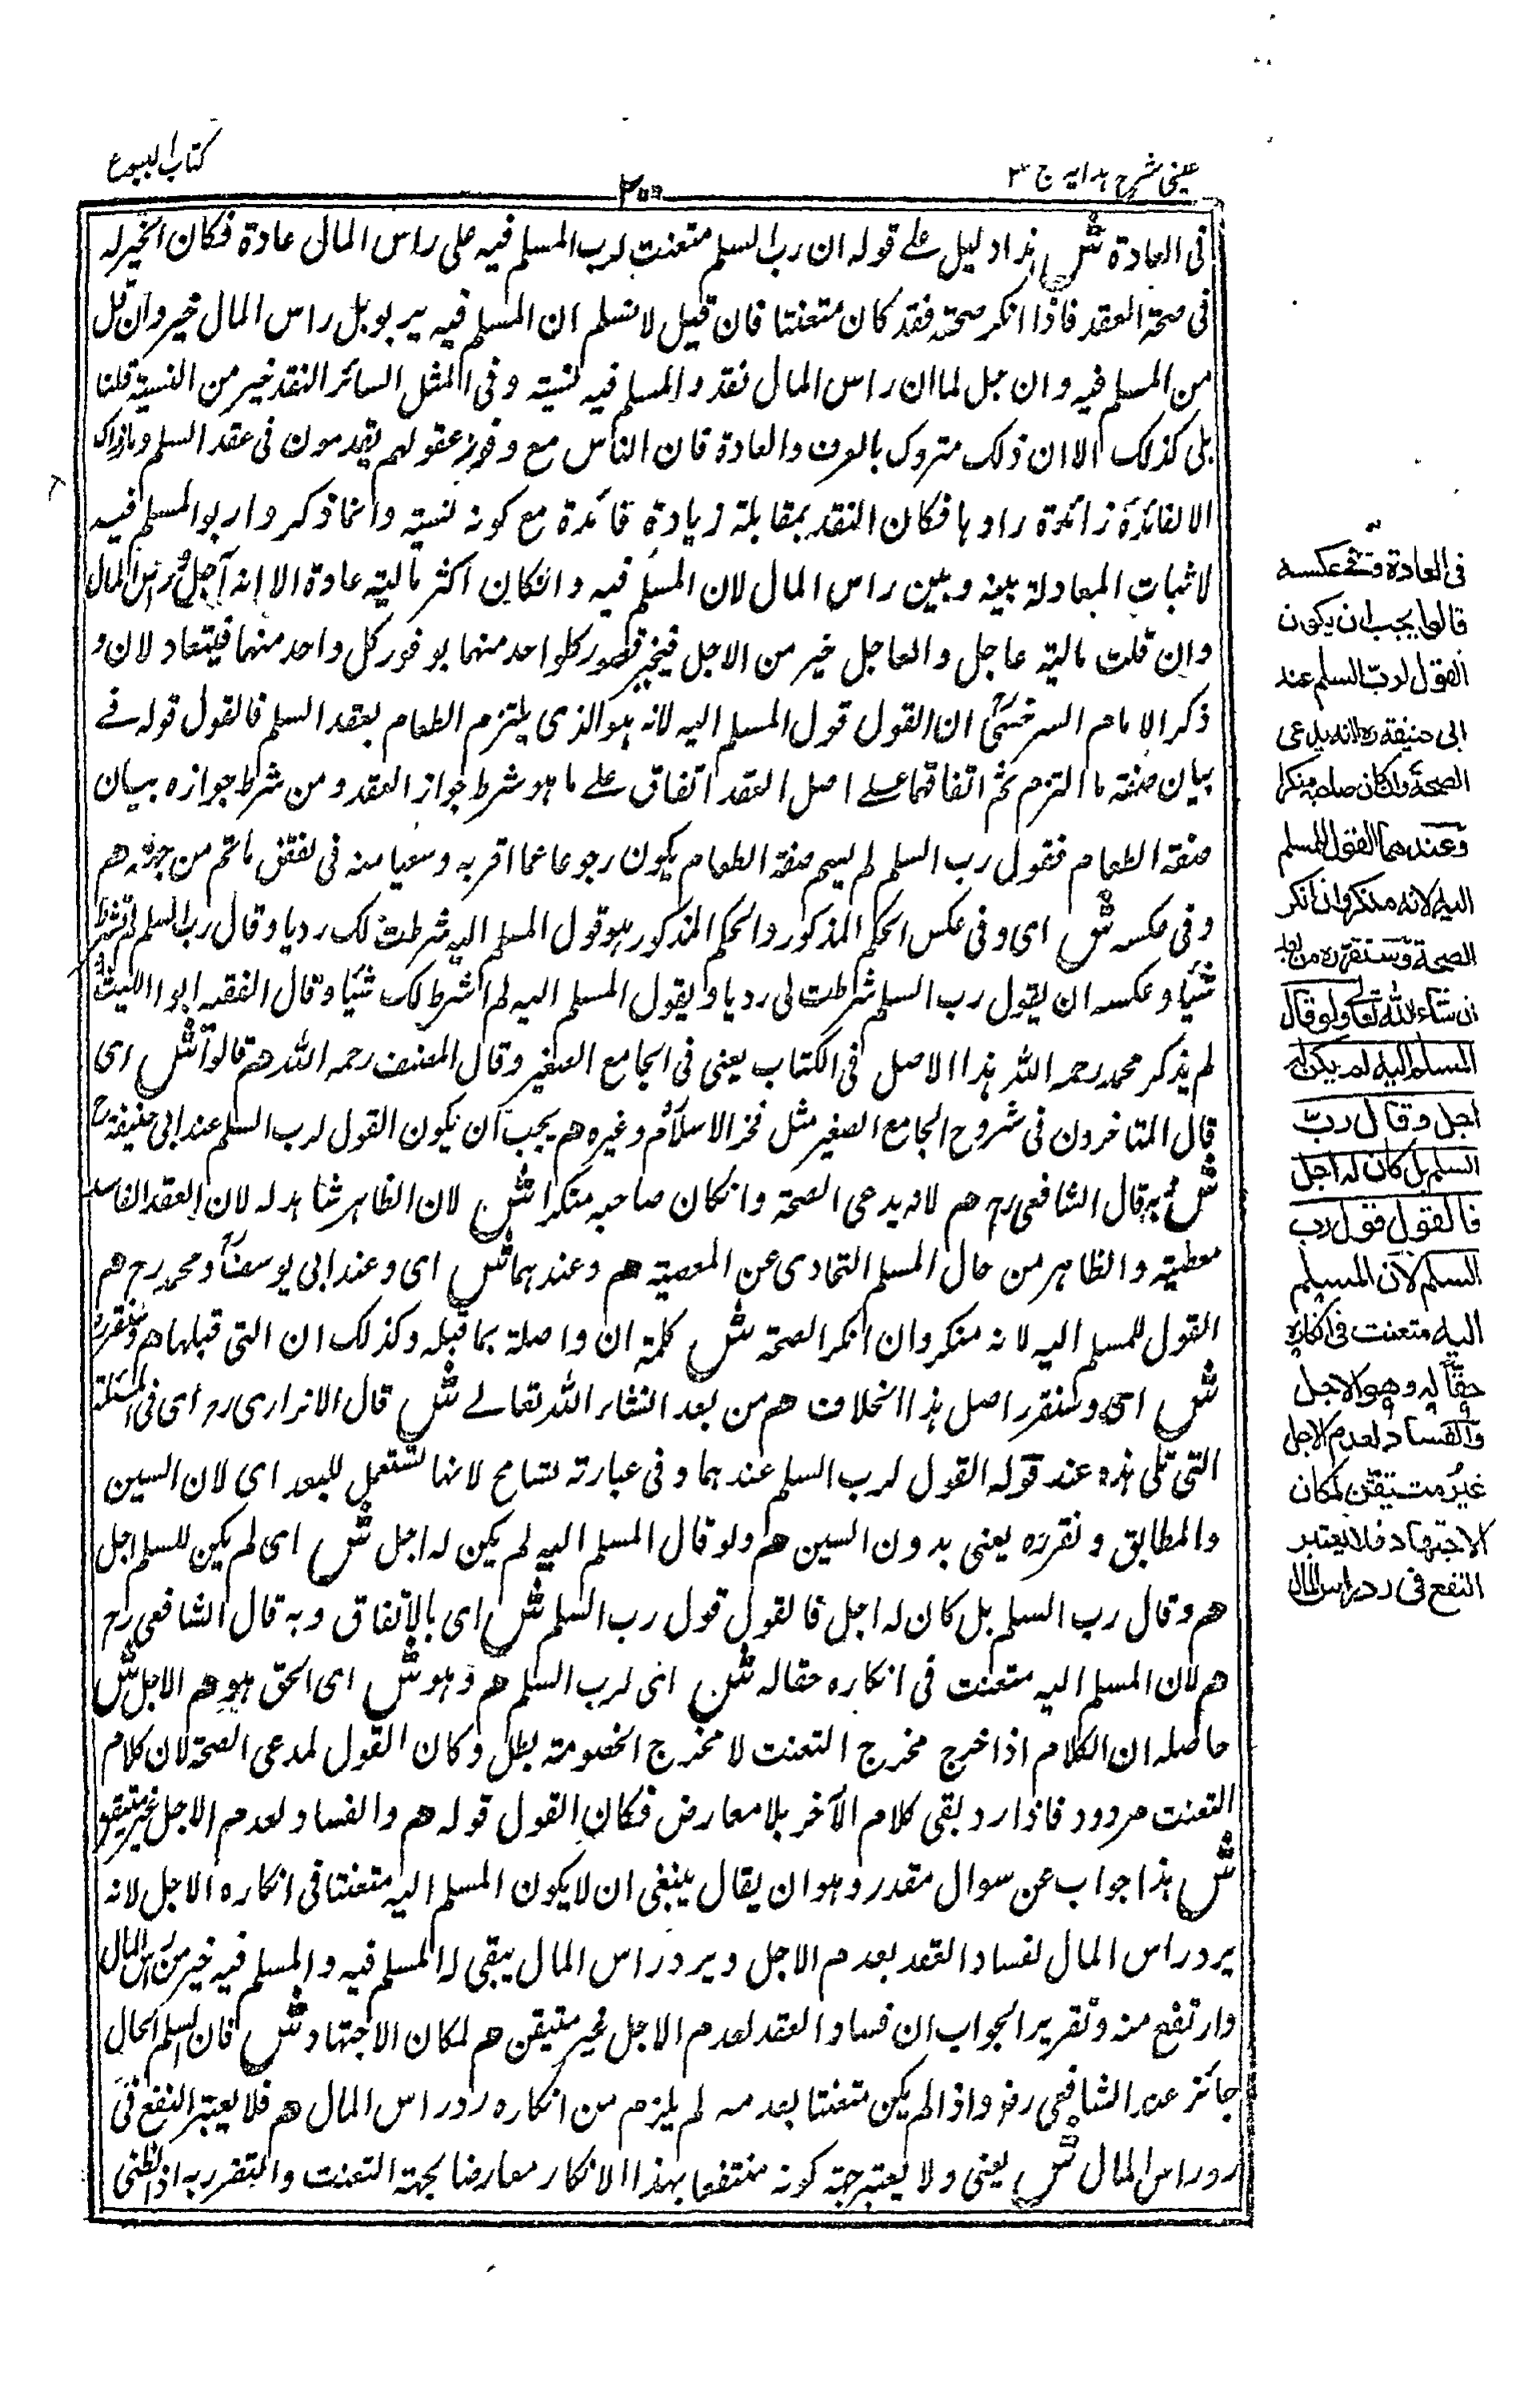 عینی شرح ہدایہ ج ۳
کتاب البیوع
فی العادة ش ہذا دلیل علے قولہ ان رب السلم متعنت لرب المسلم فیہ علی راس المال عادة فکان الخیر لہ
فی صحة العقد فاذا انکر صحتہ فقد کان متعنتا فان قیل لا نسلم ان المسلم فیہ یربو بل راس المال خیر وان قل
من المسلم فیہ وان جل لما ان راس المال نقد والمسلم فیہ نسیتہ وفی المثل السائر النقد خیر من النسیة قلنا
بلی کذلک الا ان ذلک متروک بالعرف والعادة فان الناس مع وفور عقولہم یقدمون فی عقد السلم وما ذاک
الا لفائدة زائدة راوہا فکان النقد بمقابلة زیادة فائدة مع کونہ نسیتہ وانما ذکروا ربو المسلم فیہ
لاثبات المعادلة بینہ وبین راس المال لان المسلم فیہ وانکان اکثر مالیتہ عادة الا انہ آجل وراس المال
وان قلت مالیتہ عاجل والعاجل خیر من الاجل فینجبر قصور کلواحد منہما بوفور کل واحد منہما فیتعادلان و
ذکر الامام السرخسی ان القول قول المسلم الیہ لانہ ہو الذی یلتزم الطعام بعقد السلم فالقول قولہ فے
بیان صفتہ ما التزم ثم اتفاقہما علے اصل العقد اتفاق علے ما ہو شرط جواز العقد ومن شرط جوازہ بیان
صفتہ الطعام فقول رب السلم لم یسم صفة الطعام یکون رجوعا عما اقر بہ وسعیا منہ فی نقض ماتم من جہتہ ھم
وفی عکسہ ش ای وفی عکس الحکم المذکور والحکم المذکور ہو قول المسلم الیہ شرطت لک ردیا وقال رب السلم لم تشترط
شیئا وعکسہ ان یقول رب السلم شرطت لی ردیا ویقول المسلم الیہ لم اشرط لک شیئا وقال الفقیہ ابو اللیث
لم یذکر محمد رحمہ اللہ ہذا الاصل فی الکتاب یعنی فی الجامع الصغیر وقال المصنف رحمہ اللہ ھم قالوا ش ای
قال المتاخرون فی شروح الجامع الصغیر مثل فخر الاسلام وغیرہ ھم یجب ان یکون القول لرب السلم عند ابی حنیفة رح
ش وبہ قال الشافعی رح ھم لانہ یدعی الصحة وانکان صاحبہ منکرا ش لان الظاہر شاہد لہ لان العقد الفاسد
معصیتہ والظاہر من حال المسلم التحادی عن المعصیتہ ھم وعندہما ش ای وعند ابی یوسف ومحمد رح ھم
القول للمسلم الیہ لانہ منکر وان انکر الصحة ش کلمة ان واصلة بما قبلہ وکذلک ان التی قبلہا ھم وسنقررہ
ش ای وسنقرر اصل ہذا الخلاف ھم من بعد انشاء اللہ تعالے ش قال الاتراری رح ای فی المسئلة
التی تلی ہذہ عند قولہ القول لرب السلم عندہما وفی عبارتہ تسامح لانہا تستعمل للبعد ای لان السین
والمطابق ونقررہ یعنی بدون السین ھم ولو قال المسلم الیہ لم یکن لہ اجل ش ای لم یکن للسلم اجل
ھم وقال رب السلم بل کان لہ اجل فالقول قول رب السلم ش ای بالاتفاق وبہ قال الشافعی رح
ھم لان المسلم الیہ متعنت فی انکارہ حقالہ ش ای لرب السلم ھم وہو ش ای الحق ہو ھم الاجل ش
حاصلہ ان الکلام اذا خرج مخرج التعنت لا مخرج الخصومتہ بطل وکان القول لمدعی الصحة لان کلام
التعنت مردود فاذا رد بقی کلام الآخر بلا معارض فکان القول قولہ ھم والفساد لعدم الاجل غیر متیقن
ش ہذا جواب عن سوال مقدر وہو ان یقال ینبغی ان لا یکون المسلم الیہ متعنتا فی انکارہ الاجل لانہ
یرد راس المال لفساد العقد بعدم الاجل ویرد راس المال یبقی لہ المسلم فیہ والمسلم فیہ خیر من راس المال
وارتفع منہ وتقریر الجواب ان فساد العقد لعدم الاجل غیر متیقن ھم لمکان الاجتہاد ش فان السلم الحال
جائز عند الشافعی رض واذا لم یکن متعنتا بعدمہ لم یلزم من انکارہ رد راس المال ھم فلا یعتبر النفع فی
رد راس المال ش یعنی ولا یعتبر جہتہ کونہ منتفعا بہذا الانکار معارضا لجہة التعنت والتضرر بہ
فی العادة وفی عکسہ
قالوا یجب ان یکون
القول لرب السلم عند
ابی حنیفة رہ لانہ یدعی
الصحة وان کان صاحبہ منکرا
وعندہما القول للمسلم
الیہ لانہ منکر وان انکر
الصحة وسنقررہ من بعد
ان شاء اللہ تعالی ولو قال
المسلم الیہ لم یکن لہ
اجل وقال رب
السلم بل کان لہ اجل
فالقول قول رب
السلم لان المسلم
الیہ متعنت فی انکارہ
حقا لہ وهو الاجل
والفساد لعدم الاجل
غیر متیقن لمکان
الاجتهاد فلا یعتبر
النفع فی رد راس المال